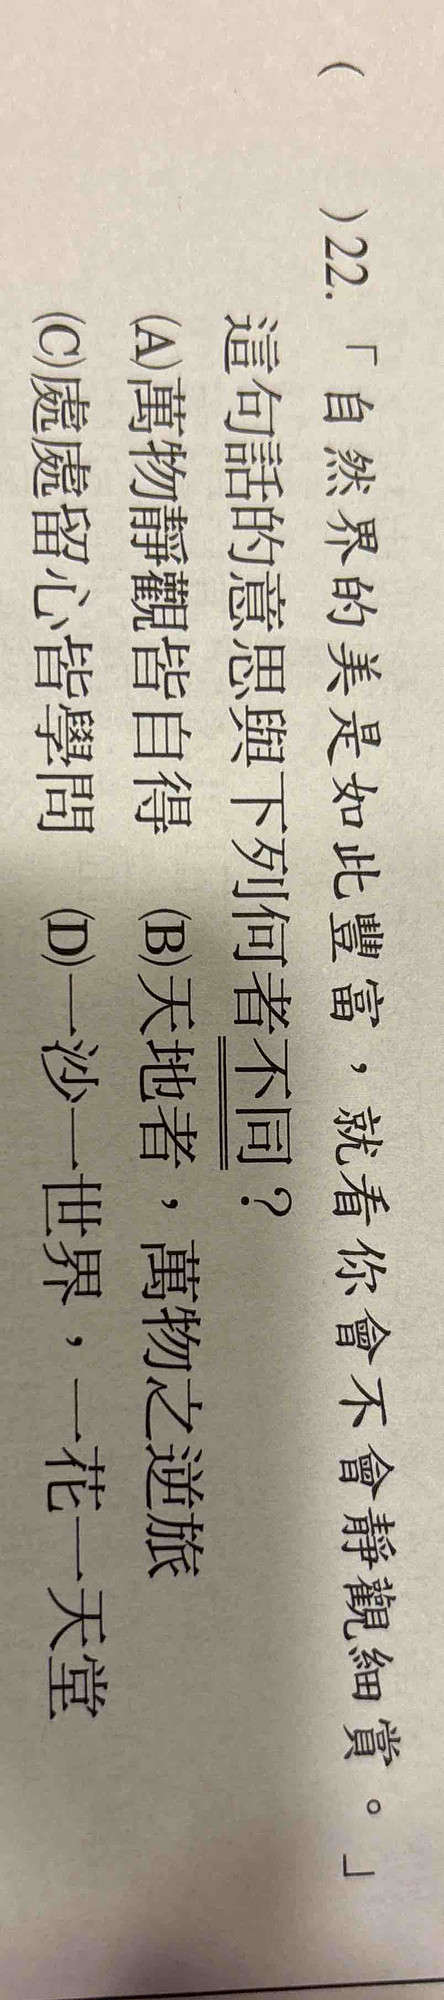 (　　)22.「自然界的美是如此豐富，就看你會不會靜觀細賞。」
這句話的意思與下列何者不同？
(A)萬物靜觀皆自得　(B)天地者，萬物之逆旅
(C)處處留心皆學問　(D)一沙一世界，一花一天堂